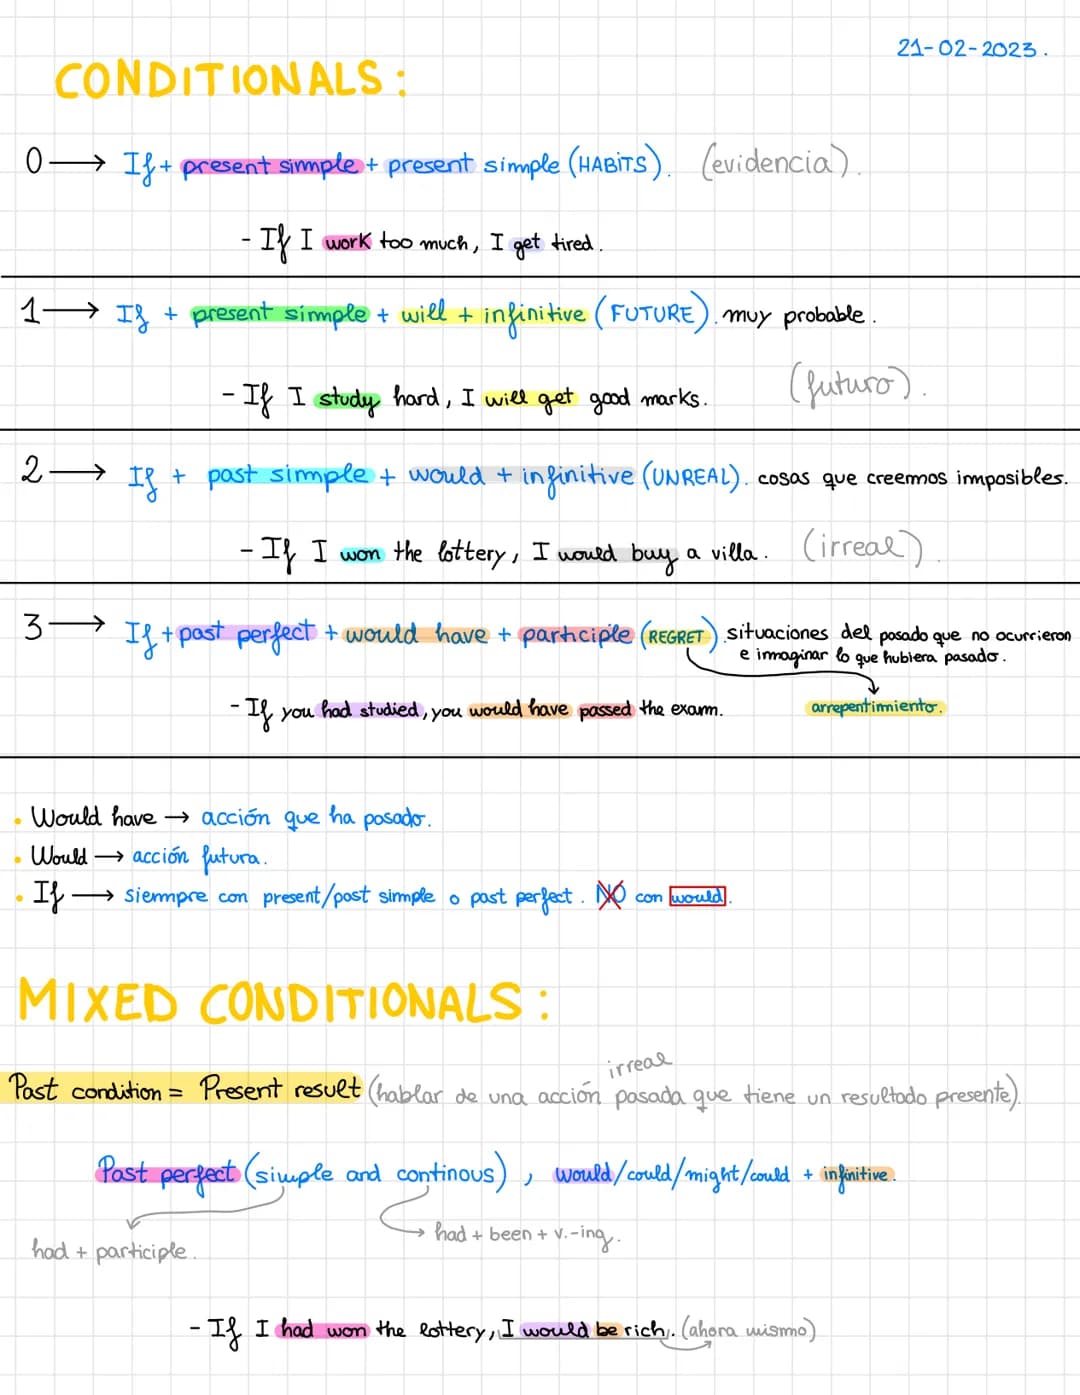 21-02-2023.
CONDITIONALS:
0 → If + present simple + present simple (HABITS). (evidencia).
- If I work too much, I get tired.
1 → If + present simple + will + infinitive (FUTURE). muy probable.
(futuro).
- If I study hard, I will get good marks.
2 → If + past simple + would + infinitive (UNREAL). cosas que creemos imposibles.
- If I won the lottery, I would buy a villa. (irreal).
3 → If + past perfect + would have + participle (REGRET). situaciones del pasado que no ocurrieron
e imaginar lo que hubiera pasado.
- If you had studied, you would have passed the exam. arrepentimiento.
• Would have → acción que ha pasado.
• Would → acción futura.
• If → siempre con present/past simple o past perfect. NO con would.
MIXED CONDITIONALS:
irreal
Past condition = Present result (hablar de una acción pasada que tiene un resultado presente).
Past perfect (simple and continous), would/could/might/could + infinitive.
→ had + been + v.-ing.
had + participle.
- If I had won the lottery, I would be rich. (ahora mismo)